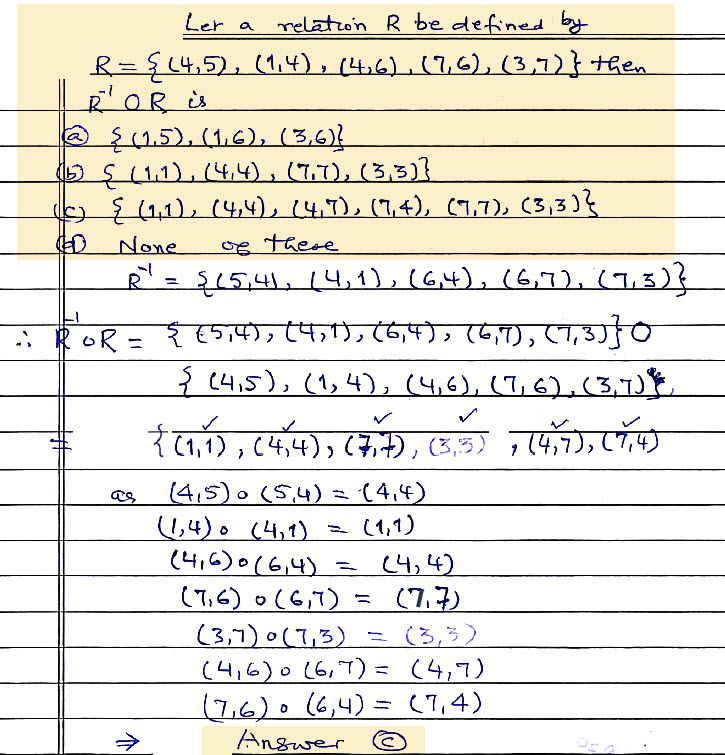 Let a relation R be defined by
R = {(4,5), (1,4), (4,6), (7,6), (3,7)} then
R⁻¹ O R is
(a) {(1,5), (1,6), (3,6)}
(b) {(1,1), (4,4), (7,7), (3,3)}
(c) {(1,1), (4,4), (4,7), (7,4), (7,7), (3,3)}
(d) None of these
R⁻¹ = {(5,4), (4,1), (6,4), (6,7), (7,3)}
∴ R⁻¹ o R = {(5,4), (4,1), (6,4), (6,7), (7,3)} O
{(4,5), (1,4), (4,6), (7,6), (3,7)},
= {(1,1), (4,4), (7,7), (3,3), (4,7), (7,4)
as (4,5) o (5,4) = (4,4)
(1,4) o (4,1) = (1,1)
(4,6) o (6,4) = (4,4)
(7,6) o (6,7) = (7,7)
(3,7) o (7,3) = (3,3)
(4,6) o (6,7) = (4,7)
(7,6) o (6,4) = (7,4)
⇒ Answer (c)